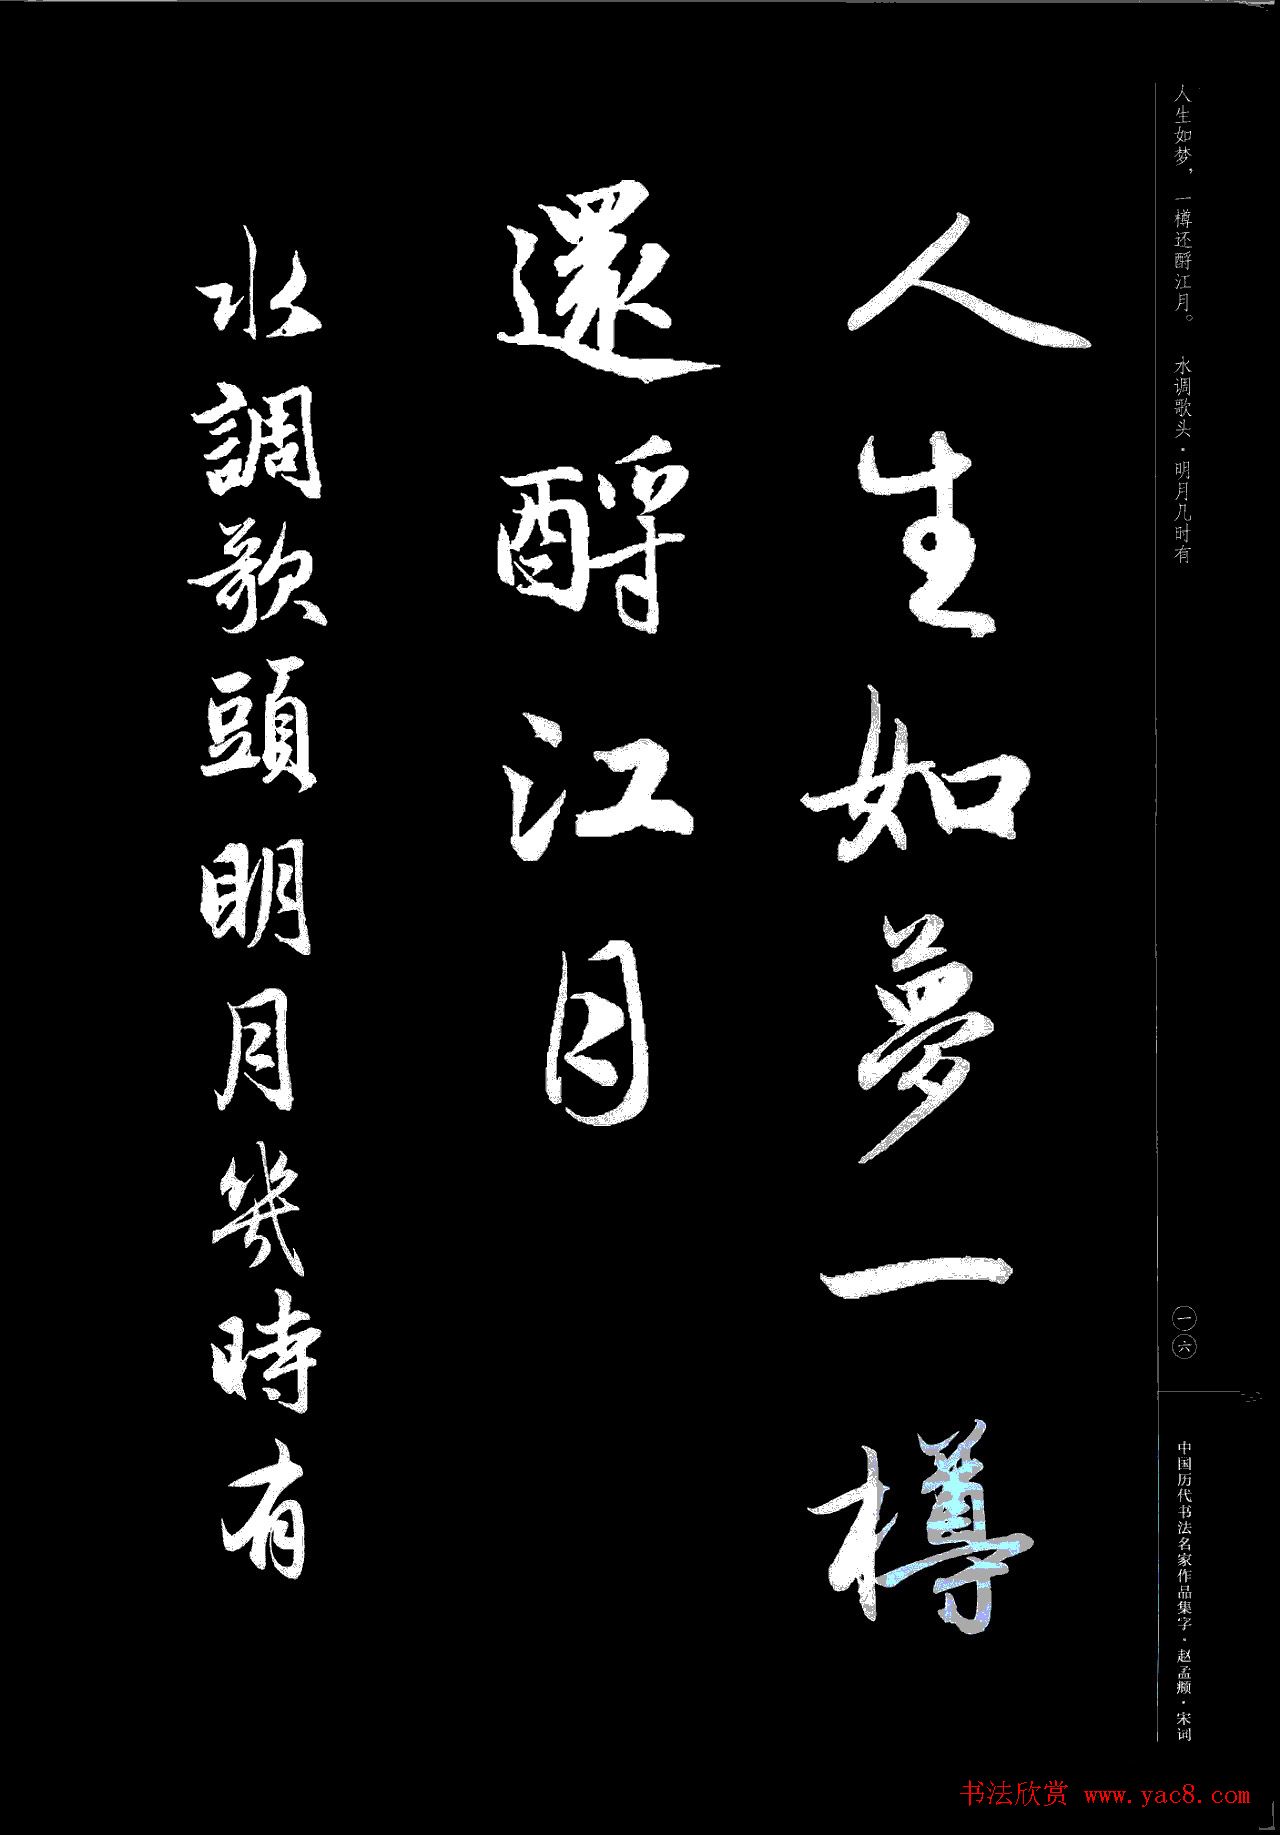 人生如梦，一樽还酹江月。 水调歌头·明月几时有
一六
中国历代书法名家作品集字·赵孟頫·宋词
人生如夢一樽
還酹江月
水調歌頭明月幾時有
书法欣赏 www.yac8.com